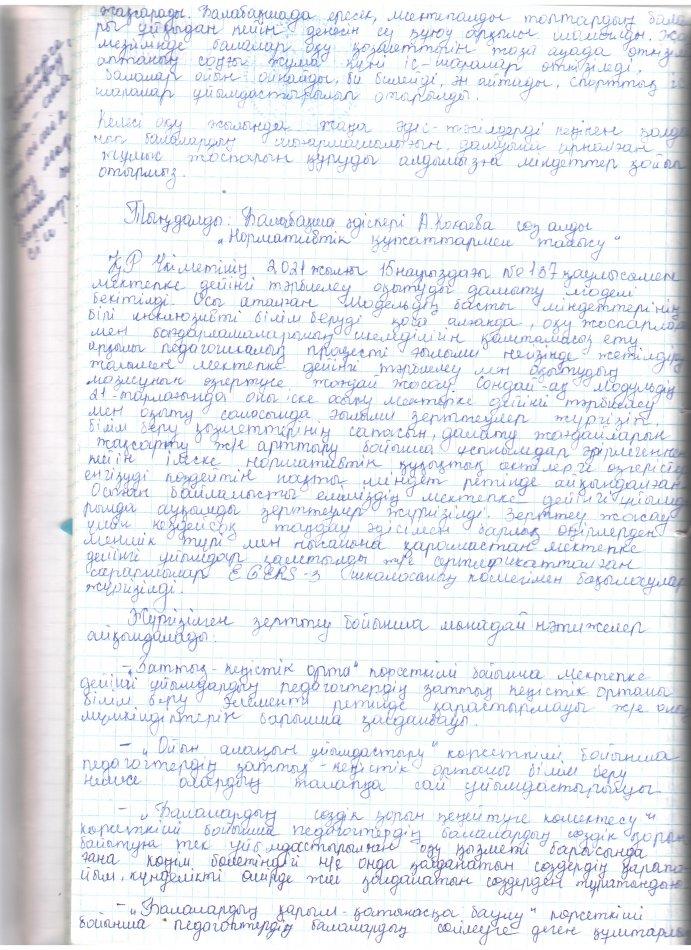 жаңғарады. Балабақшада ересек, мектепалды топтардың бала
ры ұйқыдан кейін денесін су құю арқылы шынығады. Жаз
мезгілінде балалар оқу қызметтерін таза ауада өткізіп
аптаның соңғы жұма күні іс-шаралар өткізіледі.
Балалар ойын ойнайды, би билейді, ән айтады, спорттық іс
шаралар ұйымдастырылып отырылды.
Келесі оқу жылында жаңа әдіс-тәсілдерді кеңінен қолда
нып балалардың шығармашылығын дамытып арналған
жұмыс жоспарын құруды алдымызға міндеттер қойып
отырмыз.
Тыңдалды: Балабақша әдіскері А. сөз алды
„Нормативтік құжаттармен танысу"
ҚР Үкіметінің 2021 жылғы 15 наурыздағы №137 қаулысымен
мектепке дейінгі тәрбиелеу оқытуды дамыту моделі
бекітілді. Осы аталған модельдің басты міндеттерінің
бірі инклюзивті білім беруді қоса алғанда, оқу жоспарлары
мен бағдарламаларының икемділігін қамтамасыз ету
арқылы педагогикалық процесті ғылыми негізінде жетілдіру
жалпымен мектепке дейінгі тәрбиелеу мен оқытудың
мазмұнын өзгертуге жағдай жасау. Сондай-ақ модульдің
21-тармағында оны іске асыру мектепке дейінгі тәрбиелеу
мен оқыту саласында ғылыми зерттеулер жүргізіп,
білім беру қызметтерінің сапасын дамыту жағдайларын
жақсарту және арттыру бойынша ұсынымдар әзірлегеннен
кейін іліспе нормативтік құқықтық актілерге өзгерістер
енгізуді көздейтін нақты міндет ретінде айқындалған
Осыған байланысты еліміздің мектепке дейінгі ұйымда
рында ауқымды зерттеулер жүргізілді. Зерттеу жасау
үшін кездейсоқ таңдау әдісімен барлық өңірлерден
меншік түрі мен нысанына қарамастан мектепке
дейінгі ұйымдар қамтылды және сертификатталған
сарапшылар ECERS-3 шкаласының көмегімен бақылаулар
жүргізілді.
Жүргізілген зерттеу бойынша мынадай нәтижелер
айқындалады:
– „Заттық-кеңістік орта" көрсеткіші бойынша мектепке
дейінгі ұйымдардың педагогтердің заттық кеңістік ортаны
білім беру элементі ретінде қарастырмауы және оның
мүмкіндіктерін барынша қолданбауы.
– „Ойын алаңын ұйымдастыру" көрсеткіші бойынша
педагогтердің заттық-кеңістік ортаны білім беру
немесе олардың талапқа сай ұйымдастырмауы
– „Балалардың сөздік қорын кеңейтуге көмектесу"
көрсеткіші бойынша педагогтердің балалардың сөздік қорын
байытуға тек ұйымдастырылған оқу қызметі барысында
ғана көңіл бөлетіндігі және онда қолданатын сөздердің қарапа
йым, күнделікті өмірде жиі қолданатын сөздерден тұратындығы
– „Балалардың қарым-қатынасқа баулу" көрсеткіші
бойынша педагогтердің балалардың сөйлеуге деген құштарлы